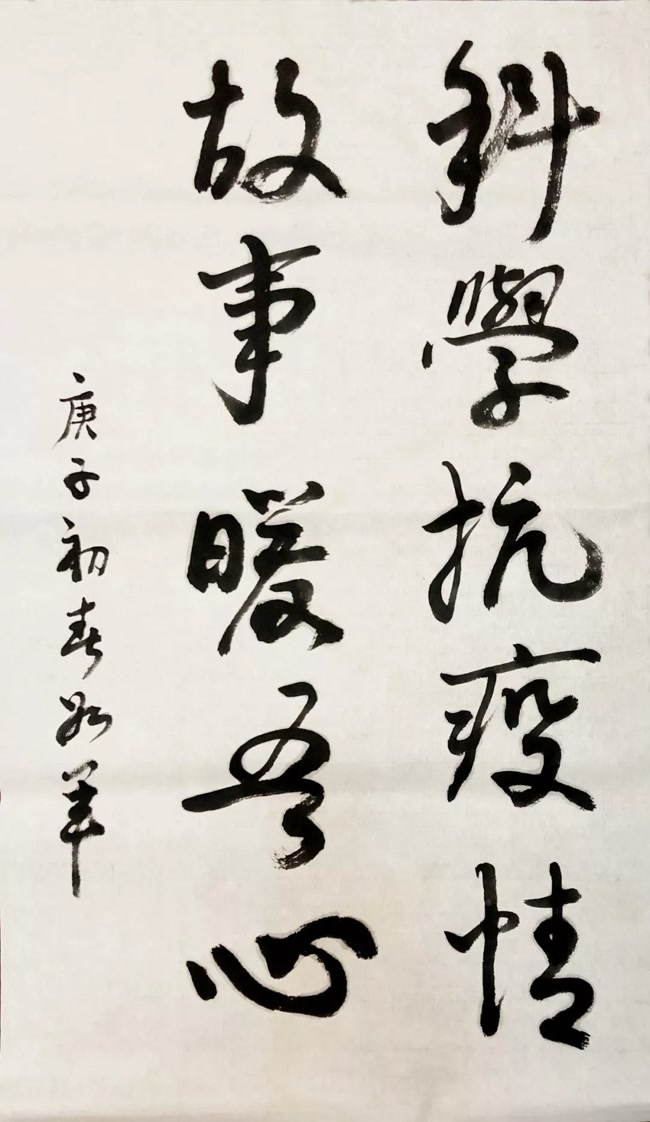 科學抗疫情
故事暖吾心
庚子初春